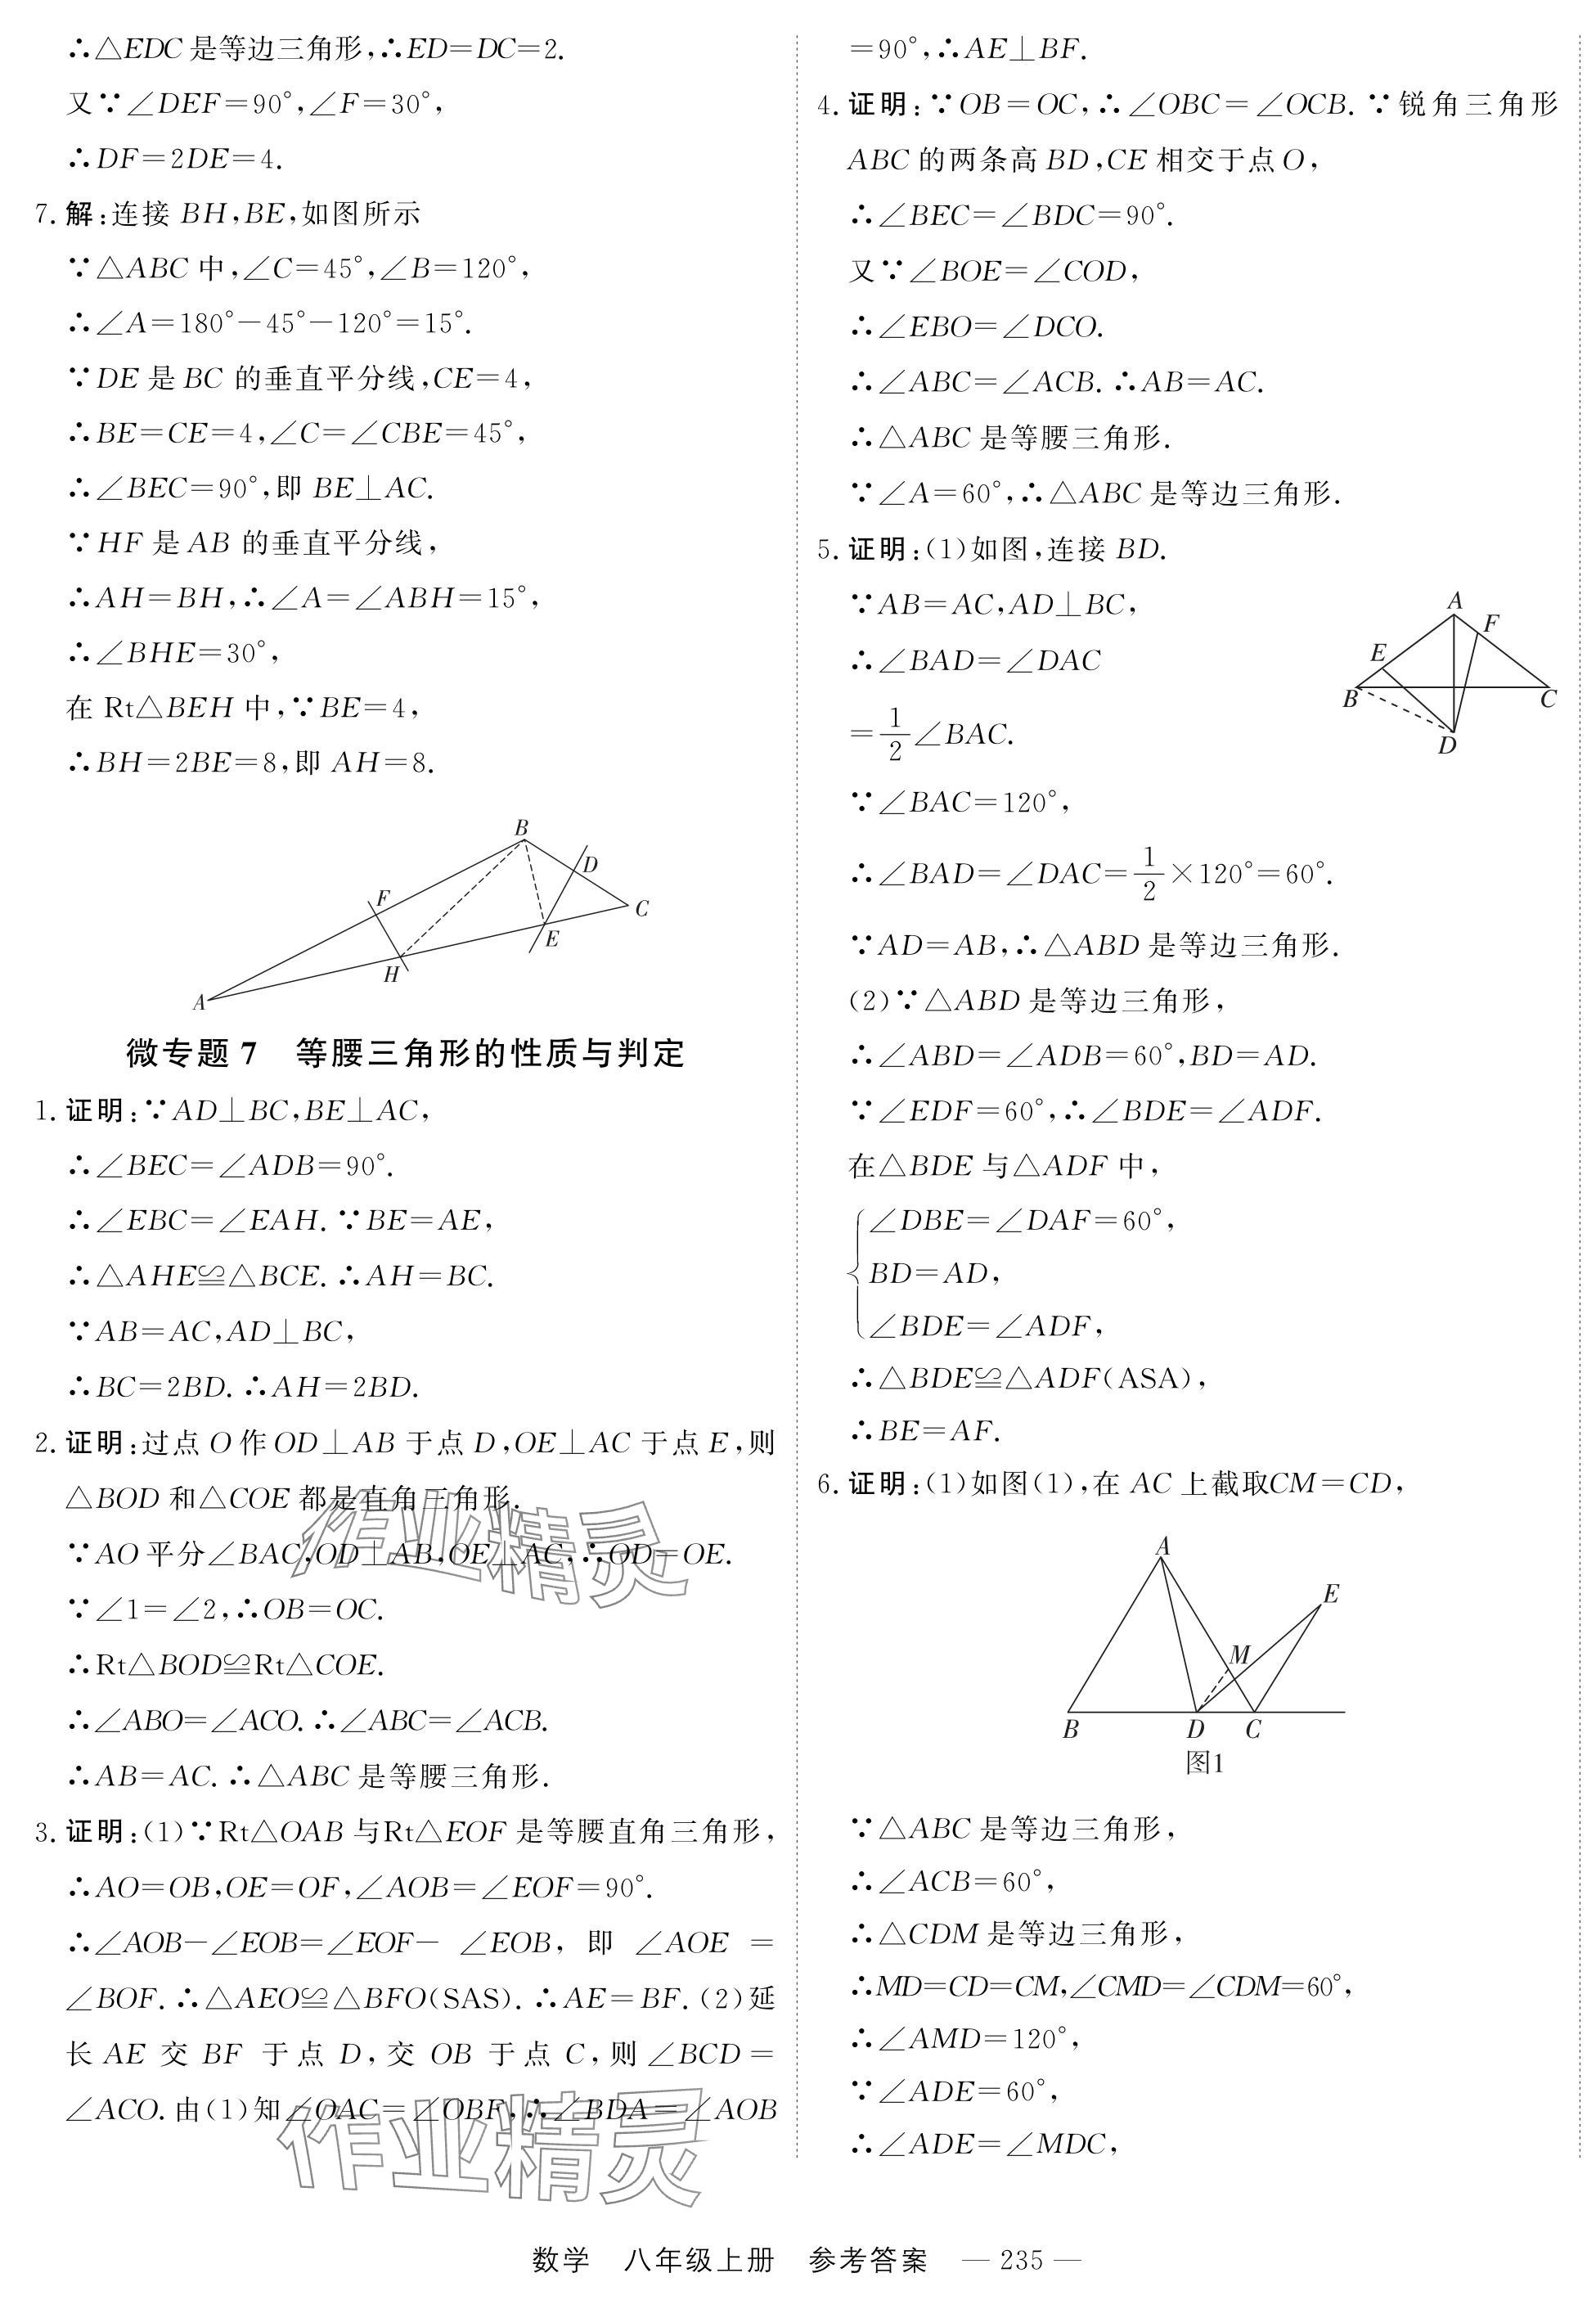 ∴△EDC是等边三角形,∴ED=DC=2.
又∵∠DEF=90°,∠F=30°,
∴DF=2DE=4.
7. 解:连接 BH,BE,如图所示
∵△ABC中,∠C=45°,∠B=120°,
∴∠A=180°-45°-120°=15°.
∵DE是BC 的垂直平分线,CE=4,
∴BE=CE=4,∠C=∠CBE=45°,
∴∠BEC=90°,即 BE⊥AC.
∵HF是AB 的垂直平分线,
∴AH=BH,∴∠A=∠ABH=15°,
∴∠BHE=30°,
在 Rt△BEH 中,∵BE=4,
∴BH=2BE=8,即 AH=8.
B
D
F
C
E
H
A
微专题7 等腰三角形的性质与判定
1. 证明:∵AD⊥BC,BE⊥AC,
∴∠BEC=∠ADB=90°.
∴∠EBC=∠EAH.∵BE=AE,
∴△AHE≌△BCE.∴AH=BC.
∵AB=AC,AD⊥BC,
∴BC=2BD.∴AH=2BD.
2. 证明:过点O作OD⊥AB于点D,OE⊥AC于点E,则
△BOD和△COE都是直角三角形.
∵AO平分∠BAC,OD⊥AB,OE⊥AC,∴OD=OE.
∵∠1=∠2,∴OB=OC.
∴Rt△BOD≌Rt△COE.
∴∠ABO=∠ACO.∴∠ABC=∠ACB.
∴AB=AC.∴△ABC是等腰三角形.
3. 证明:(1)∵Rt△OAB与Rt△EOF是等腰直角三角形,
∴AO=OB,OE=OF,∠AOB=∠EOF=90°.
∴∠AOB-∠EOB=∠EOF- ∠EOB, 即 ∠AOE =
∠BOF.∴△AEO≌△BFO(SAS).∴AE=BF.(2)延
长 AE 交 BF 于点 D,交 OB 于点 C,则∠BCD=
∠ACO.由(1)知∠OAC=∠OBF,∴∠BDA=∠AOB
作业精灵
作业精灵
=90°,∴AE⊥BF.
4. 证明:∵OB=OC,∴∠OBC=∠OCB.∵锐角三角形
ABC的两条高BD,CE相交于点O,
∴∠BEC=∠BDC=90°.
又∵∠BOE=∠COD,
∴∠EBO=∠DCO.
∴∠ABC=∠ACB.∴AB=AC.
∴△ABC是等腰三角形.
∵∠A=60°,∴△ABC是等边三角形.
5. 证明:(1)如图,连接 BD.
∵AB=AC,AD⊥BC,
∴∠BAD=∠DAC
=1/2∠BAC.
A
F
E
B
C
D
∵∠BAC=120°,
∴∠BAD=∠DAC=1/2×120°=60°.
∵AD=AB,∴△ABD是等边三角形.
(2)∵△ABD是等边三角形,
∴∠ABD=∠ADB=60°,BD=AD.
∵∠EDF=60°,∴∠BDE=∠ADF.
在△BDE与△ADF中,
∠DBE=∠DAF=60°,
BD=AD,
∠BDE=∠ADF,
∴△BDE≌△ADF(ASA),
∴BE=AF.
6. 证明:(1)如图(1),在 AC上截取CM=CD,
A
E
M
B
D
C
图1
∵△ABC是等边三角形,
∴∠ACB=60°,
∴△CDM是等边三角形,
∴MD=CD=CM,∠CMD=∠CDM=60°,
∴∠AMD=120°,
∵∠ADE=60°,
∴∠ADE=∠MDC,
数学 八年级上册 参考答案 — 235 —